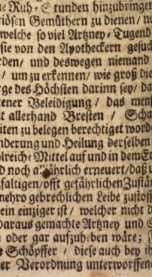 den Ruh-Stunden hinzubringen
Gemüthern zu dienen / 
welche so viel Artzney-Tugend
sie von den Apotheckern gesuch
den / und deswegen niemand
/ um zu erkennen / wie groß die
ge des Höchsten darinn sey / da
ener Beleidigung / das men
t allerhand Bresten
iten zu belegen berechtiget word
nderung und Heilung derselben
lreich-Mittel auf und in dem E
d noch alljährlich erneuert / daß u
faltigen / offt gefährlichen Zustän
nehro gebrechlichen Leibe zustoss
ein einziger ist / welcher nicht d
daraus gemachte Artzney und
oder gar aufzuheben wäre;
e Schöpffer / diese auch bey
er Verordnung unterworffen